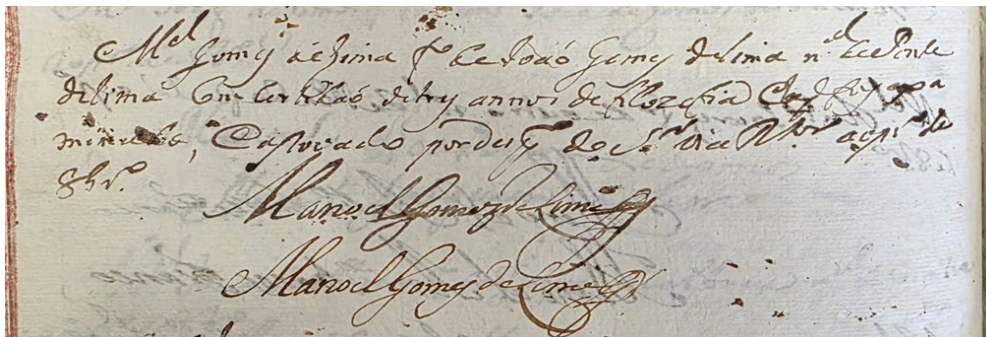 M.el Gomes de Lima f.o de João Gomes de Lima n.al de Ponte
de Lima Com Certidão de tres annos de filozofia
, E aprovado por desp.o do S.r Vice R.tor de
8br.o
Manoel Gomez de Lima
Manoel Gomes de Lima